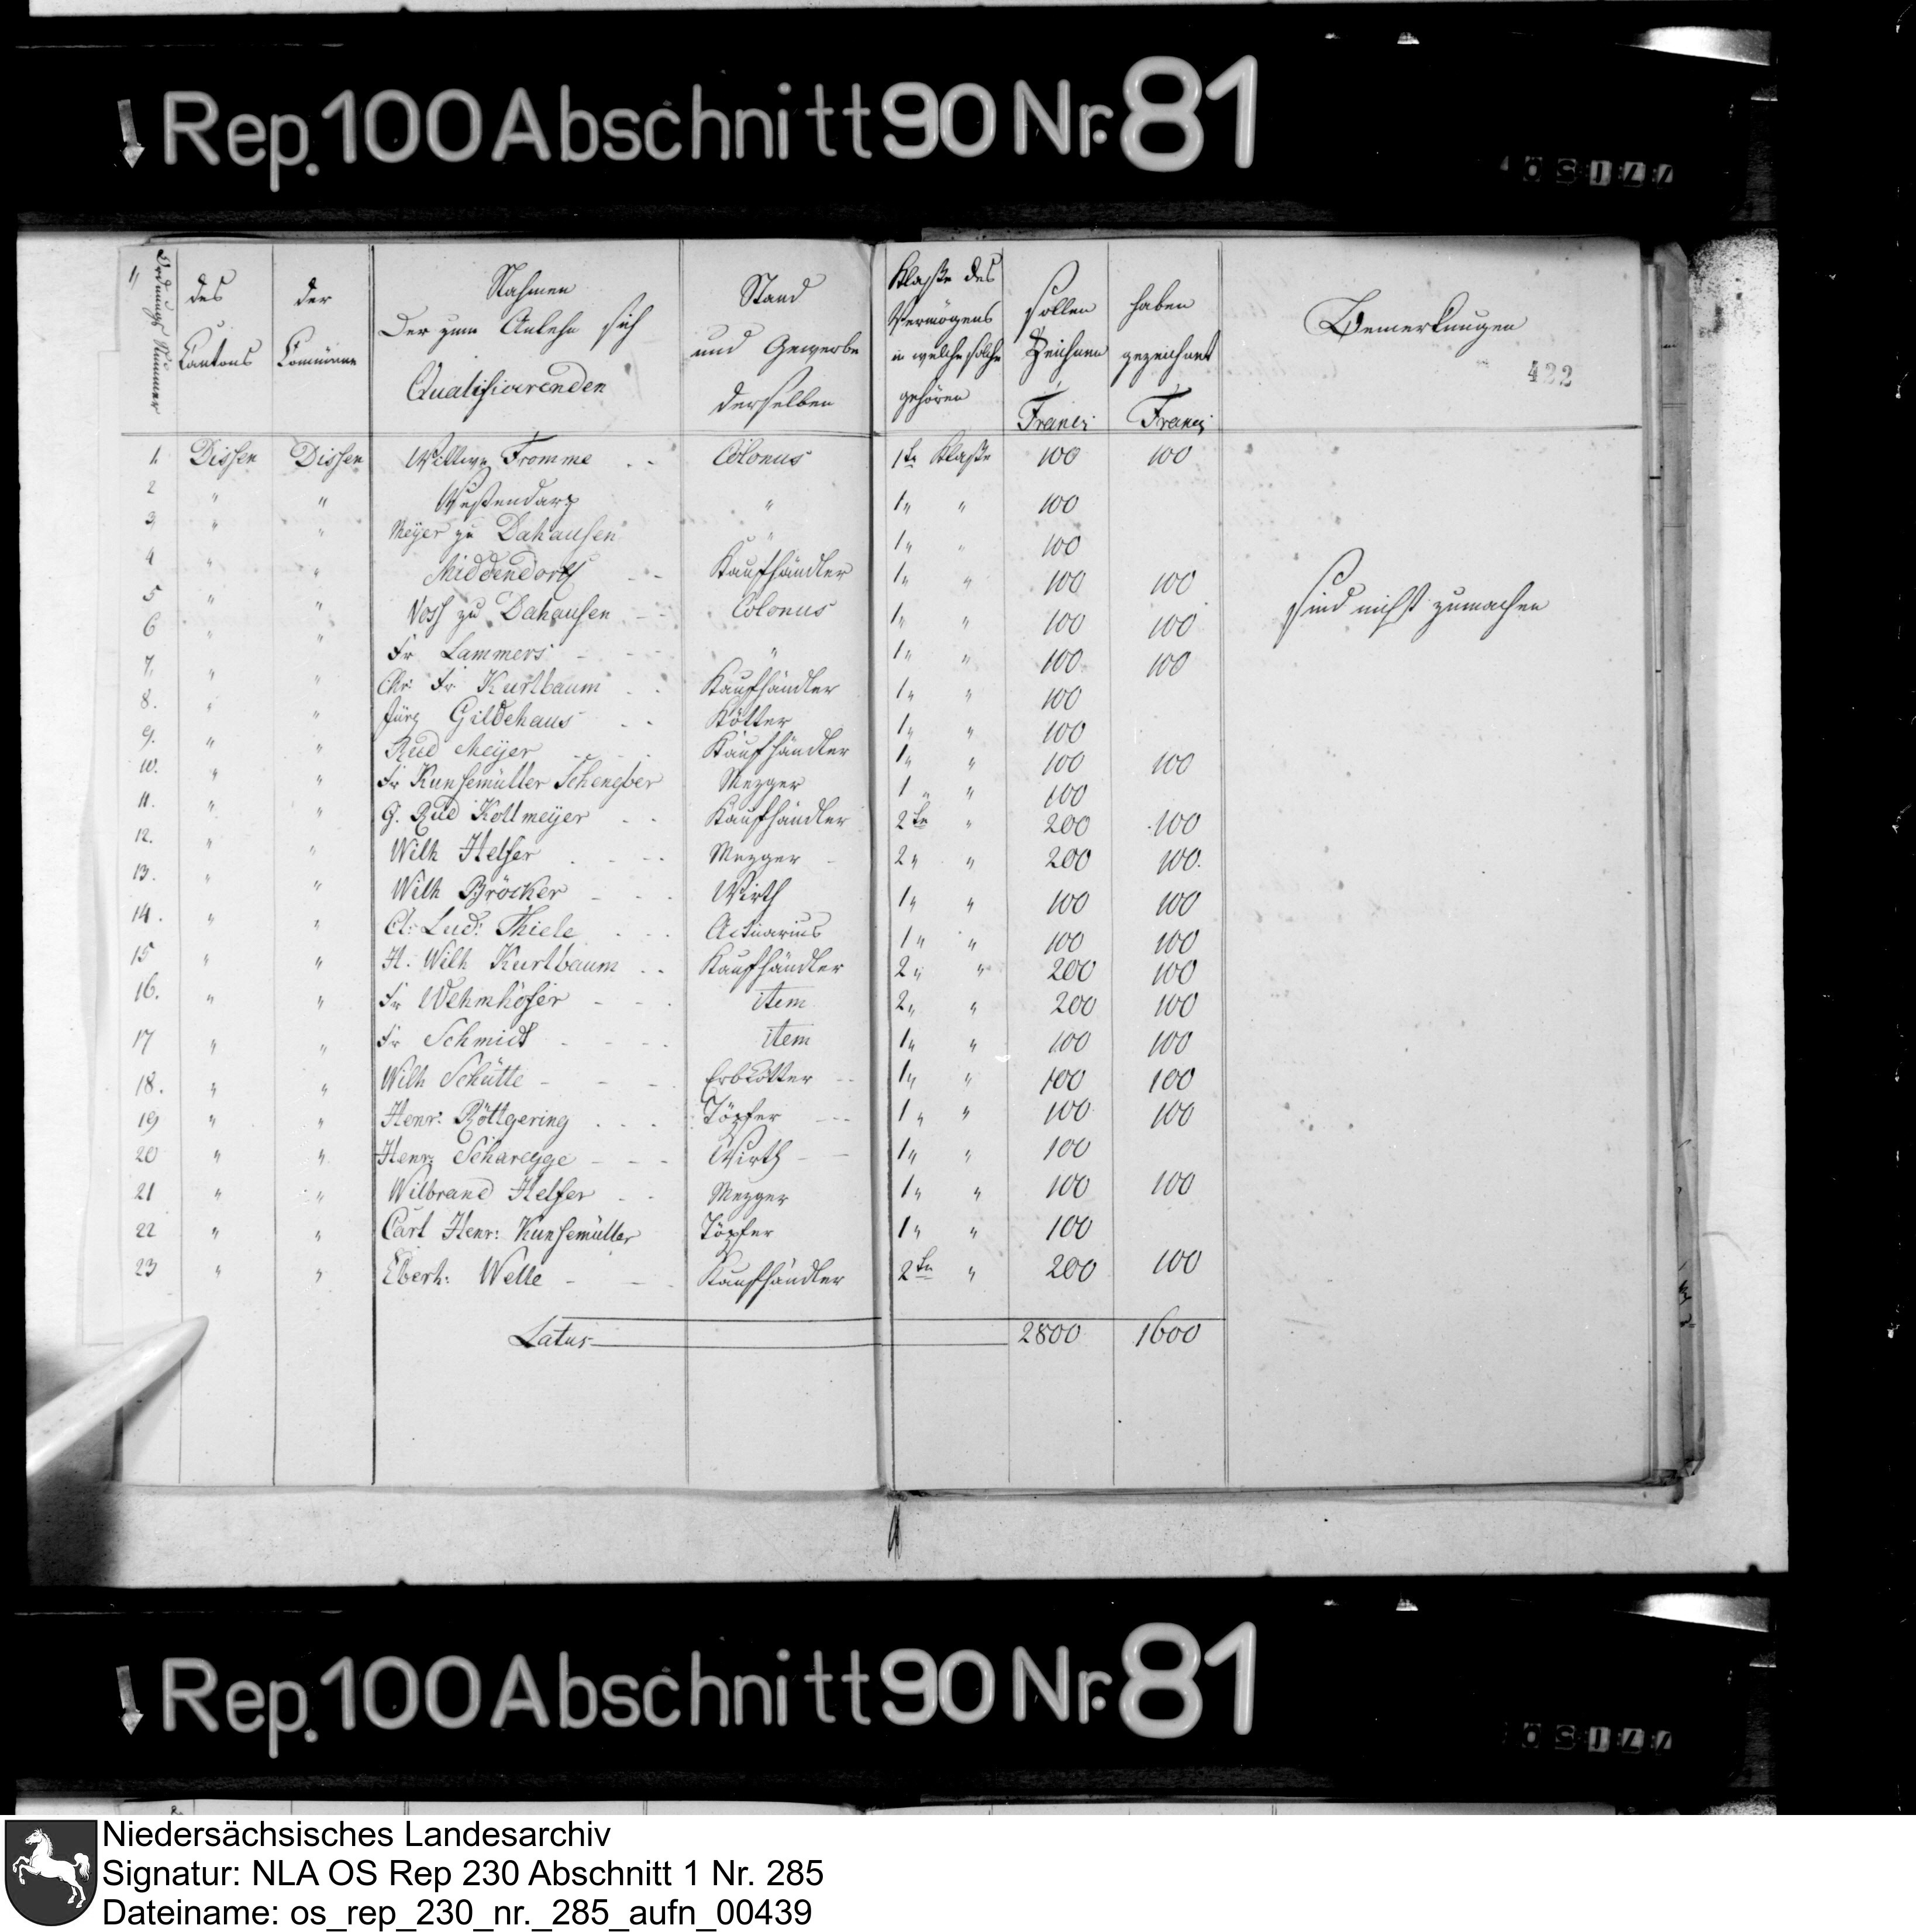 Rep. 100 Abschnitt 90 Nr. 81
Ordnungs Nummer
des Cantons
der Commüne
Nahmen Der zum Anlehn sich Qualificirenden
Stand und Gewerbe derselben
Klaße des Vermögens in welche solche gehören
sollen Zeichnen Francs
haben gezeichnet Francs
Bemerkungen
422
1. Dissen Dissen Wittwe Fromme Colonus 1te Klaße 100 100
2 " " Westendarp " 1 " " 100
3 " " Meyer zu Dahausen " 1 " " 100
4 " " Middendorf Kaufhändler 1 " " 100 100
5 " " Voss zu Dahausen Colonus 1 " " 100 100
sind nicht zumachen
6 " " Fr Lammers " 1 " " 100 100
7. " " Chr: Fr: Kurlbaum Kaufhändler 1 " " 100
8. " " Jürg Gildehaus Kötter 1 " " 100
9. " " Rud Meyer Kaufhändler 1 " " 100 100
10. " " Fr Kunsemüller Mezger 1 " " 100
11. " " G. Rud Kollmeyer Kaufhändler 2te " 200 100
12. " " Wilh Helfer Mezger 2 " " 200 100.
13. " " Wilh Bröcker Wirth 1 " " 100 100
14. " " Cl: Lud: Thiele Actuarius 1 " " 100 100
15 " " H. Wilh Kurlbaum Kaufhändler 2 " " 200 100
16. " " Fr Wehmhöfer item 2 " " 200 100
17 " " Fr Schmidt item 1 " " 100 100
18. " " Wilh Schütte Erbkötter 1 " " 100 100
19 " " Henr: Röttgering Töpfer 1 " " 100 100
20 " " Henr: Scharegge Wirth 1 " " 100
21 " " Wilbrand Helfer Mezger 1 " " 100 100
22 " " Carl Henr: Kunsemüller Töpfer 1 " " 100
23 " " Eberh: Welle Kaufhändler 2te " 200 100
Latus 2800 1600
Rep. 100 Abschnitt 90 Nr. 81
Niedersächsisches Landesarchiv
Signatur: NLA OS Rep 230 Abschnitt 1 Nr. 285
Dateiname: os_rep_230_nr._285_aufn_00439